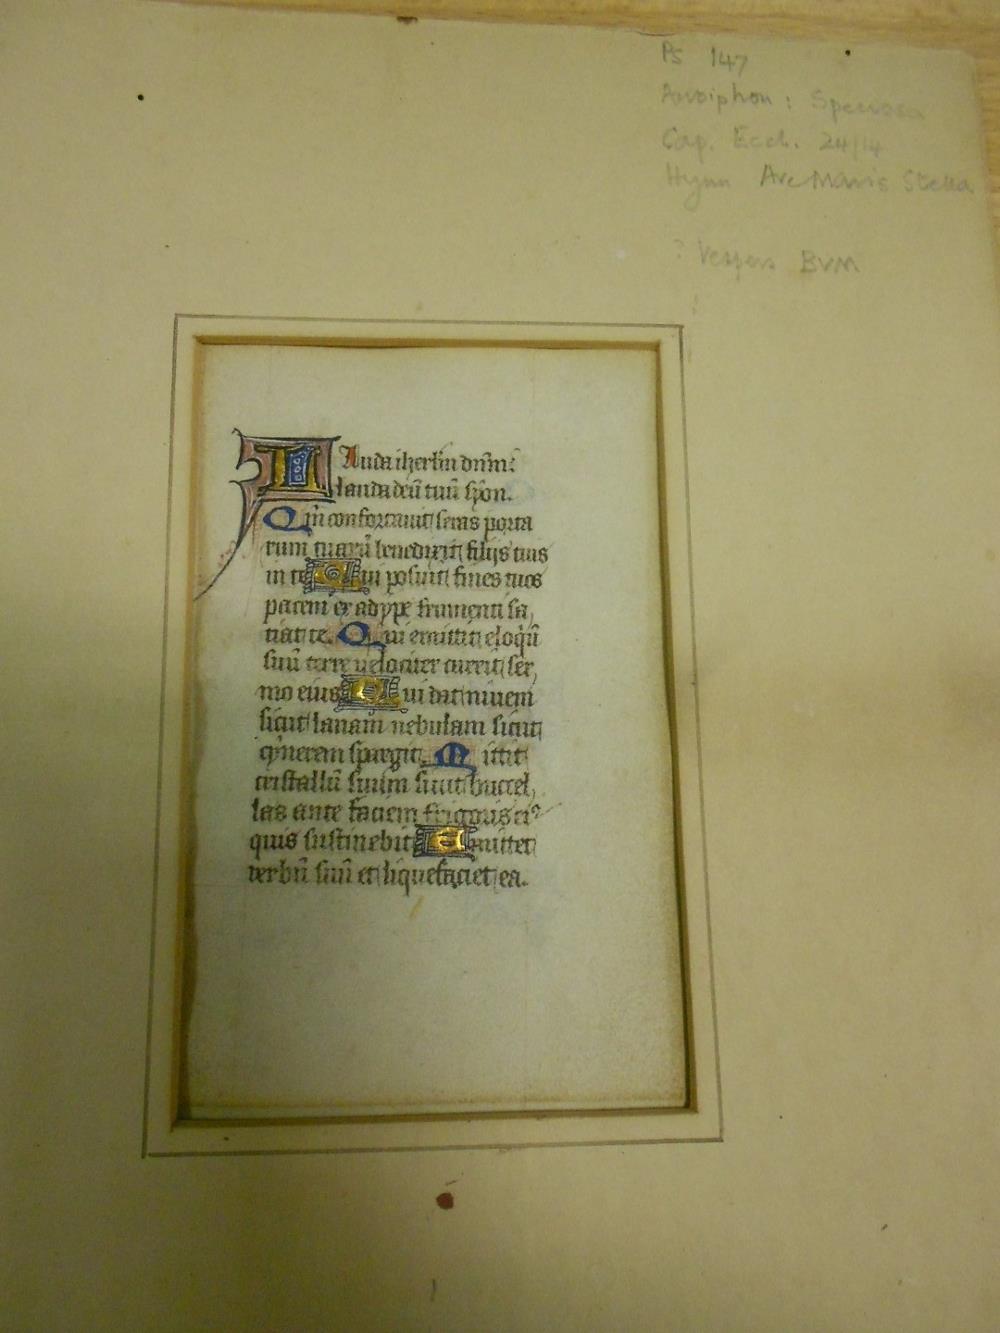 Ps 147
Antiphon: Speciosa
Cap. Eccl. 24/14
Hymn Ave Maris Stella
? Vespers BVM
Lauda iherlm dnm:
lauda deū tuū syon.
Qm confortauit seras porta
rum tuarū benedixit filijs tuis
in te Qui posuit fines tuos
pacem et adype frumenti sa,
tiat te. Qui emittit eloqū
suū terre velociter currit ser,
mo eius Qui dat niuem
sicut lanam nebulam sicut
cynerem spargit. Mittit
cristallū suum sicut buccel,
las ante faciem frigoris ei⁹
quis sustinebit Emittet
verbū suū et liquefaciet ea.